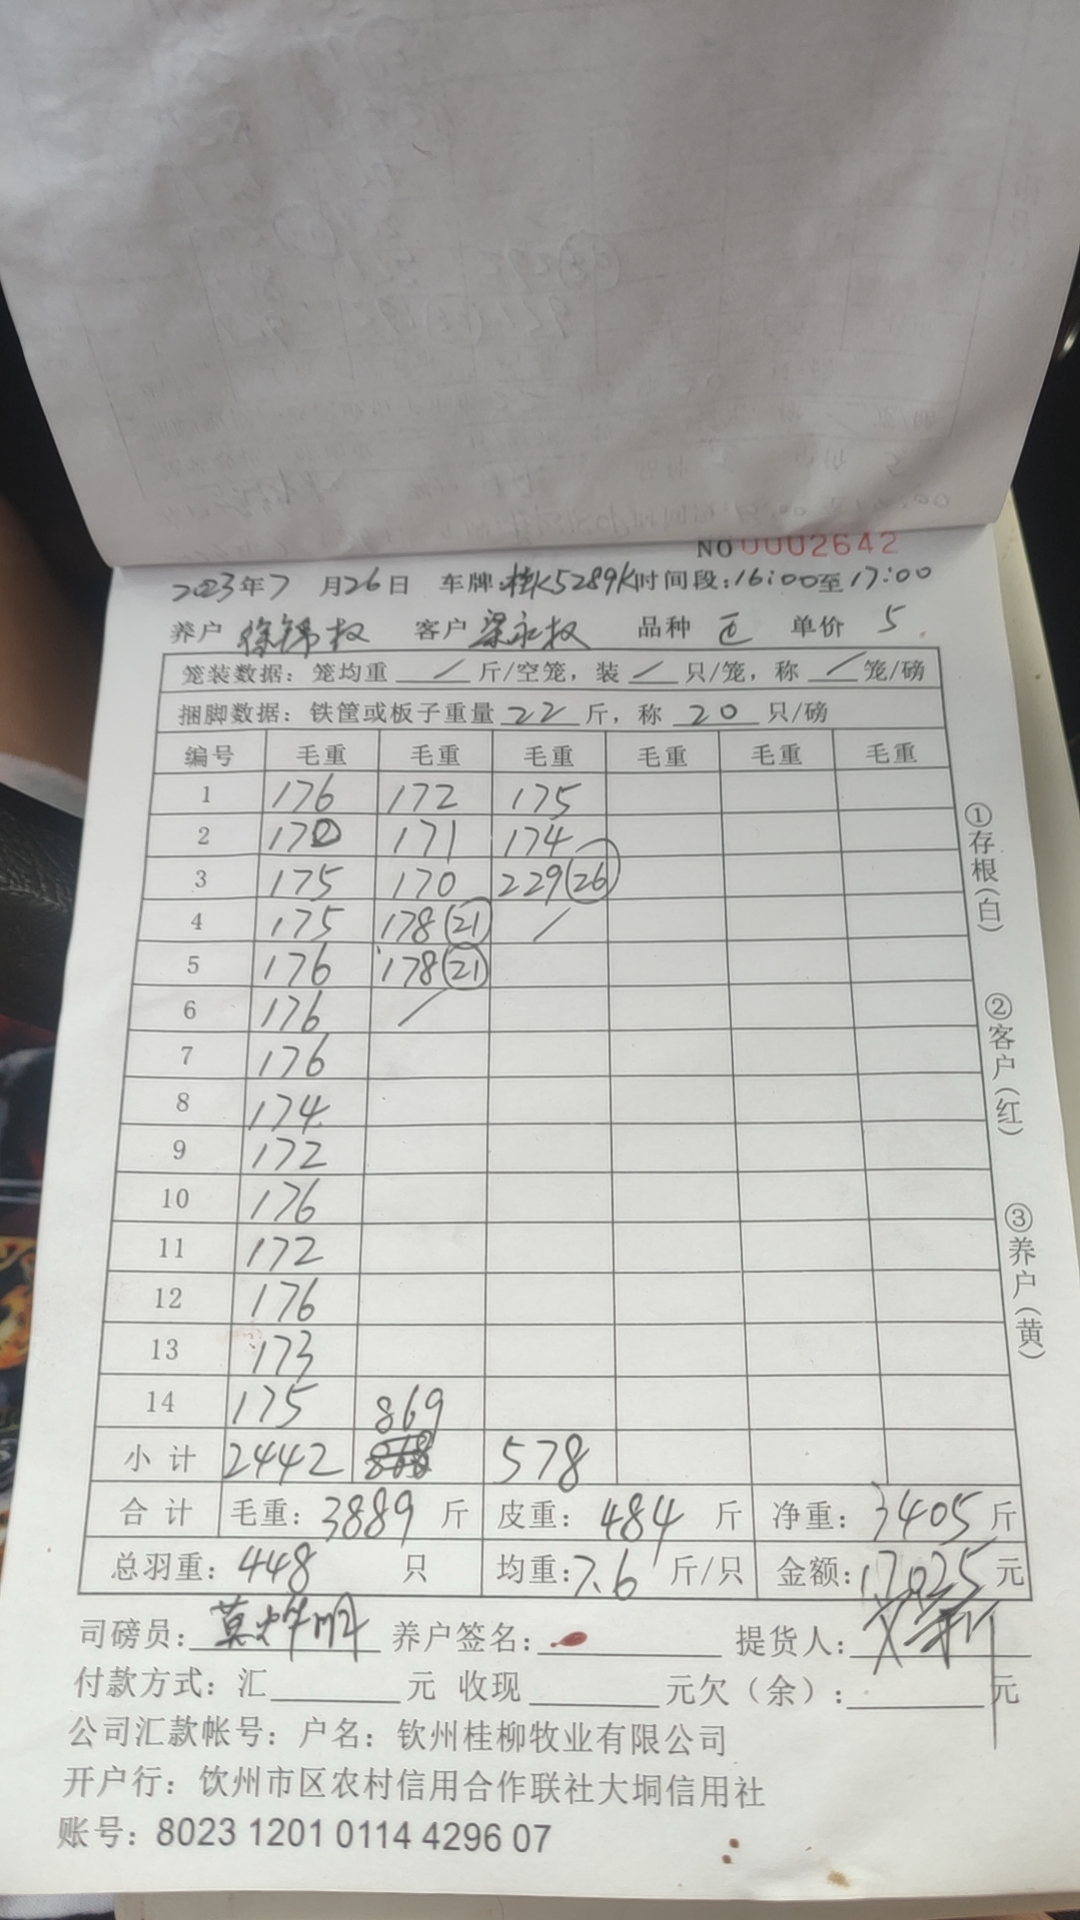 NO 0002642
2023年7月26日 车牌:桂K5289K时间段:16:00至17:00
养户 徐锦权 客户 梁永权 品种 单价 5
笼装数据: 笼均重 / 斤/空笼, 装 / 只/笼, 称 / 笼/磅
捆脚数据: 铁筐或板子重量 22 斤, 称 20 只/磅
编号 毛重 毛重 毛重 毛重 毛重 毛重
1 176 172 175
2 170 171 174
3 175 170 229(26)
4 175 178(21) /
5 176 178(21)
6 176 /
7 176
8 174
9 172
10 176
11 172
12 176
13 173
14 175 869
小计 2442 578
合计 毛重: 3889 斤 皮重: 484 斤 净重: 3405 斤
总羽重: 448 只 均重: 7.6 斤/只 金额: 17025 元
司磅员: 养户签名: 提货人:
付款方式: 汇 元 收现 元欠(余): 元
公司汇款帐号: 户名: 钦州桂柳牧业有限公司
开户行: 饮州市区农村信用合作联社大垌信用社
账号: 8023 1201 0114 4296 07
①存根(白)
②客户(红)
③养户(黄)